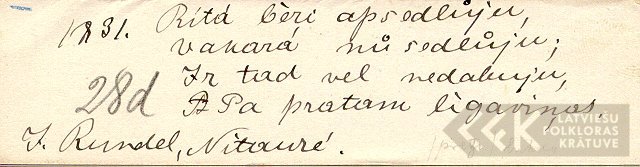 1831. Rītá bēri apsedlůju,
vakará nůsedlůju;
Ir tad vel nedabuju,
Pa pratam līgaviņas.
28d
J. Rundel, Nītaurē.
LATVIEŠU
FOLKLORAS
KRĀTUVE